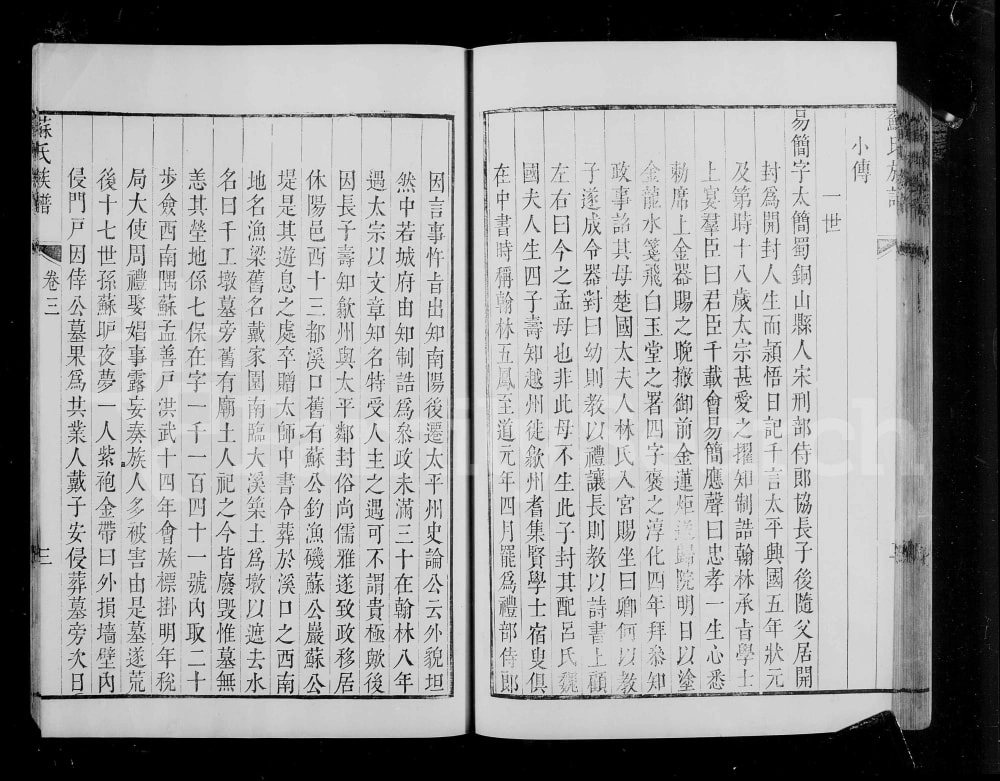 小傳
一世
易簡字太簡蜀銅山縣人宋刑部侍郎協長子後隨父居開
封爲開封人生而頴悟日記千言太平興國五年狀元
及第時十八歲太宗甚愛之擢知制誥翰林承旨學士
上宴羣臣曰君臣千載會易簡應聲曰忠孝一生心悉
勑席上金器賜之晚撤御前金蓮炬送歸院明日以塗
金龍水箋飛白玉堂之署四字褒之淳化四年拜叅知
政事詔其母楚國太夫人林氏入宮賜坐曰卿何以教
子遂成令器對曰幼則教以禮讓長則教以詩書上顧
左右曰今之孟母也非此母不生此子封其配呂氏魏
國夫人生四子壽知越州徙歙州耆集賢學士宿叟俱
在中書時稱翰林五鳳至道元年四月罷爲禮部侍郎
因言事忤旨出知南陽後遷太平州史論公云外貌坦
然中若城府由知制誥爲叅政未滿三十在翰林八年
遇太宗以文章知名特受人主之遇可不謂貴極歟後
因長子壽知歙州與太平鄰封俗尚儒雅遂致政移居
休陽邑西十三都溪口舊有蘇公釣漁磯蘇公巖蘇公
堤是其遊息之處卒贈太師中書令葬於溪口之西南
地名漁梁舊名戴家園南臨大溪築土爲墩以遮去水
名曰千工墩墓旁舊有廟土人祀之今皆廢毀惟墓無
恙其塋地係七保在字一千一百四十一號內取二十
步僉西南隅蘇孟善戸洪武十四年會族標掛明年稅
局大使周禮娶娼事露妄奏族人多被害由是墓遂荒
後十七世孫蘇馿夜夢一人紫袍金帶曰外損墙壁內
侵門戸因倖公墓果爲其業人戴子安侵葬墓旁次日
蘇氏族譜
卷三
三